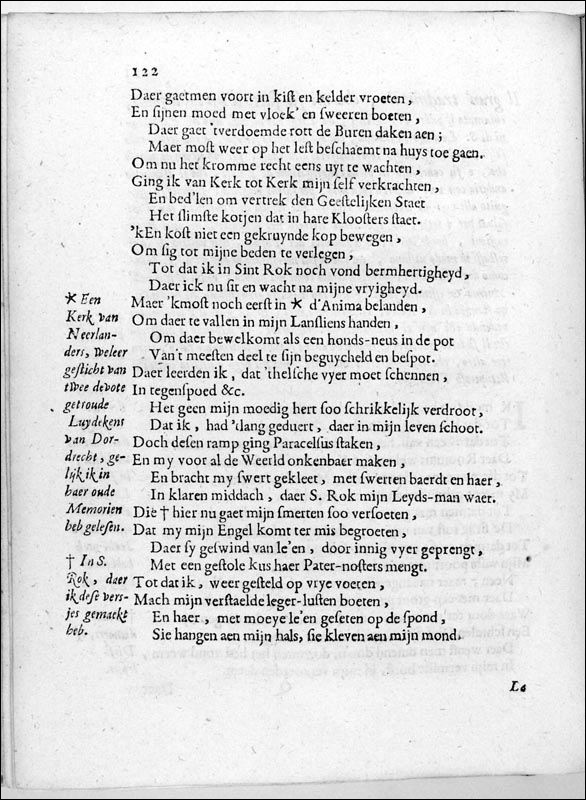 122
Daer gaetmen voort in kist en kelder vroeten,
En sijnen moed met vloek' en sweeren boeten,
Daer gaet 'tverdoemde rott de Buren daken aen;
Maer most weer op het lest beschaemt na huys toe gaen.
Om nu het kromme recht eens uyt te wachten,
Ging ik van Kerk tot Kerk mijn self verkrachten,
En bed'len om vertrek den Geestelijken Staet
Het slimste kotjen dat in hare Kloosters staet.
'kEn kost niet een gekruynde kop bewegen,
Om sig tot mijne beden te verlegen,
Tot dat ik in Sint Rok noch vond bermhertigheyd,
Daer ick nu sit en wacht na mijne vryigheyd.
Maer 'kmost noch eerst in * d'Anima belanden,
Om daer te vallen in mijn Lansliens handen,
Om daer bewelkomt als een honds-neus in de pot
Van't meesten deel te sijn beguycheld en bespot.
Daer leerden ik, dat 'thelsche vyer moet schennen,
In tegenspoed &c.
Het geen mijn moedig hert soo schrikkelijk verdroot,
Dat ik, had 'tlang geduert, daer in mijn leven schoot.
Doch desen ramp ging Paracelsus staken,
En my voor al de Weerld onkenbaer maken,
En bracht my swert gekleet, met swerten baerdt en haer,
In klaren middach, daer S. Rok mijn Leyds-man waer.
Die † hier nu gaet mijn smerten soo versoeten,
Dat my mijn Engel komt ter mis begroeten,
Daer sy geswind van le'en, door innig vyer geprengt,
Met een gestole kus haer Pater-nosters mengt.
Tot dat ik, weer gesteld op vrye voeten,
Mach mijn verstaelde leger-lusten boeten,
En haer, met moeye le'en geseten op de spond,
Sie hangen aen mijn hals, sie kleven aen mijn mond.
* Een
Kerk van
Neerlan-
ders, weleer
gesticht van
twee devote
getroude
Luydekens
van Dor-
drecht, ge-
lijk ik in
haer oude
Memorien
heb gelesen.
† In S.
Rok, daer
ik dese vers-
jes gemaekt
heb.